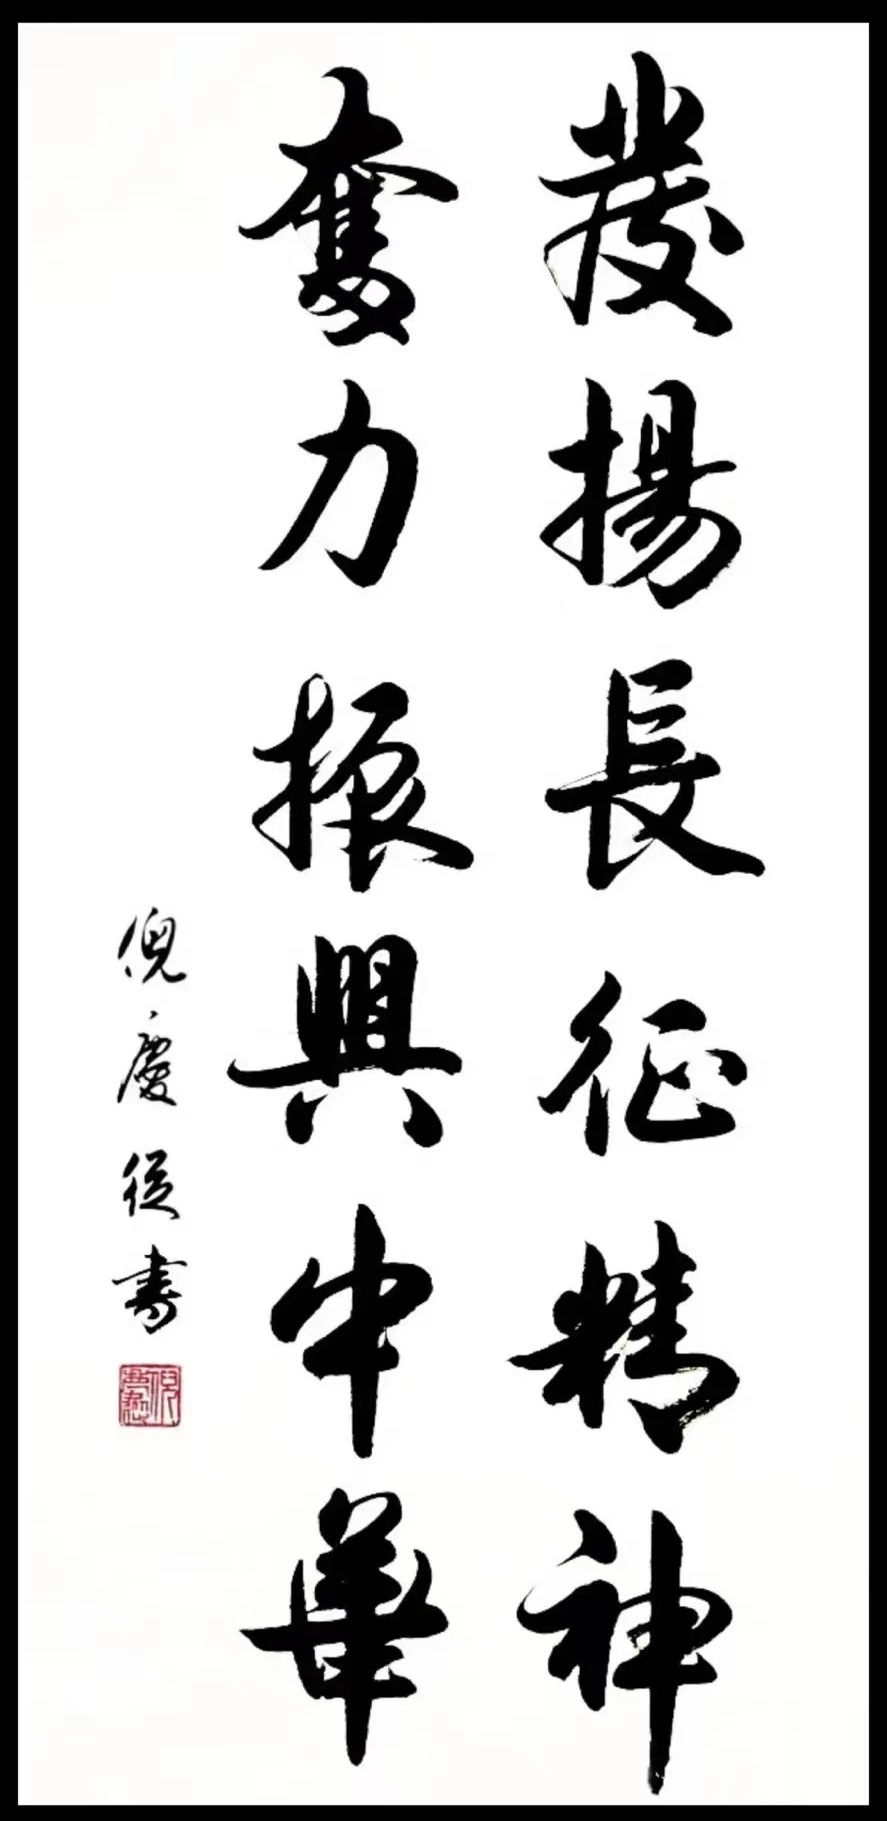 發揚長征精神
奮力振興中華
倪慶從書